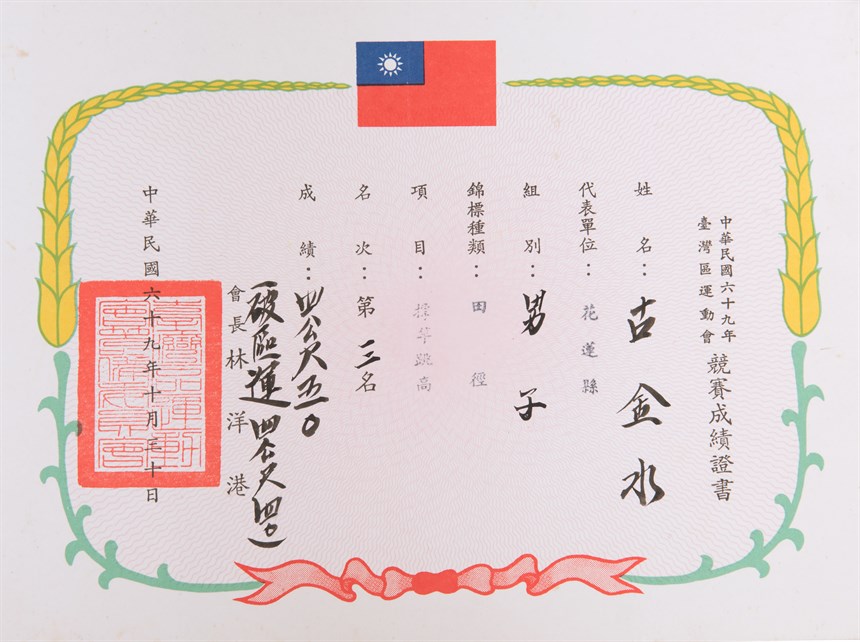 中華民國六十九年
臺灣區運動會
競賽成績證書
姓名：古金水
代表單位：花蓮縣
組別：男子
錦標種類：田徑
項目：撐竿跳高
名次：第三名
成績：四公尺五〇
(破區運四公尺四〇)
會長林洋港
中華民國六十九年十月三十日